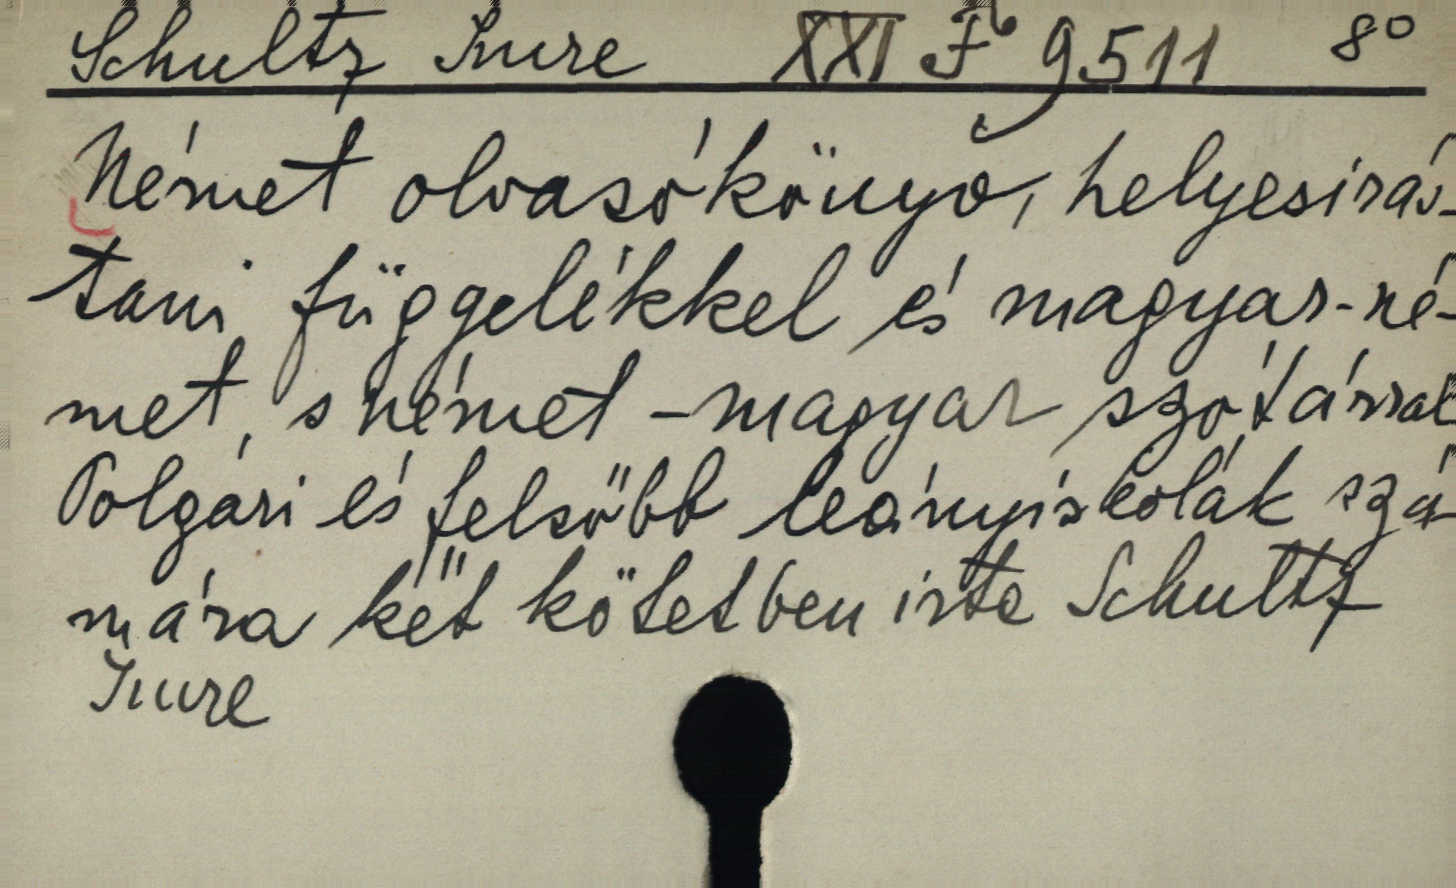 Schultz Imre XXI Fb 9511 8°
Német olvasókönyv, helyesirás-
tani függelékkel és magyar-né-
met, s német-magyar szótárral
Polgári és felsőbb leányiskolák szá-
mára két kötetben irta Schultz
Imre